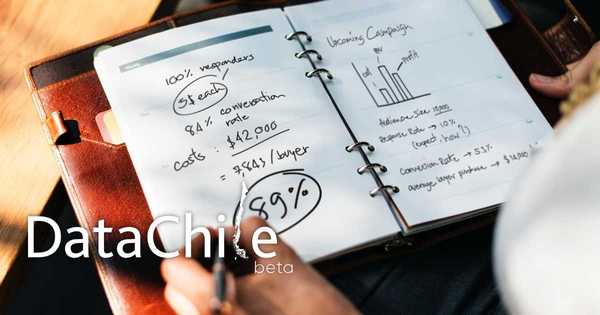 100% responders
5$ each
84% conversation
rate
costs: $42,000
= 7,843/buyer
89%
Upcoming Campaign
profit
Audience size 10,000
Response Rate → 10%
(expect. how?)
Conversion Rate → 5.3%
average buyer purchase → $14,000
DataChile
beta